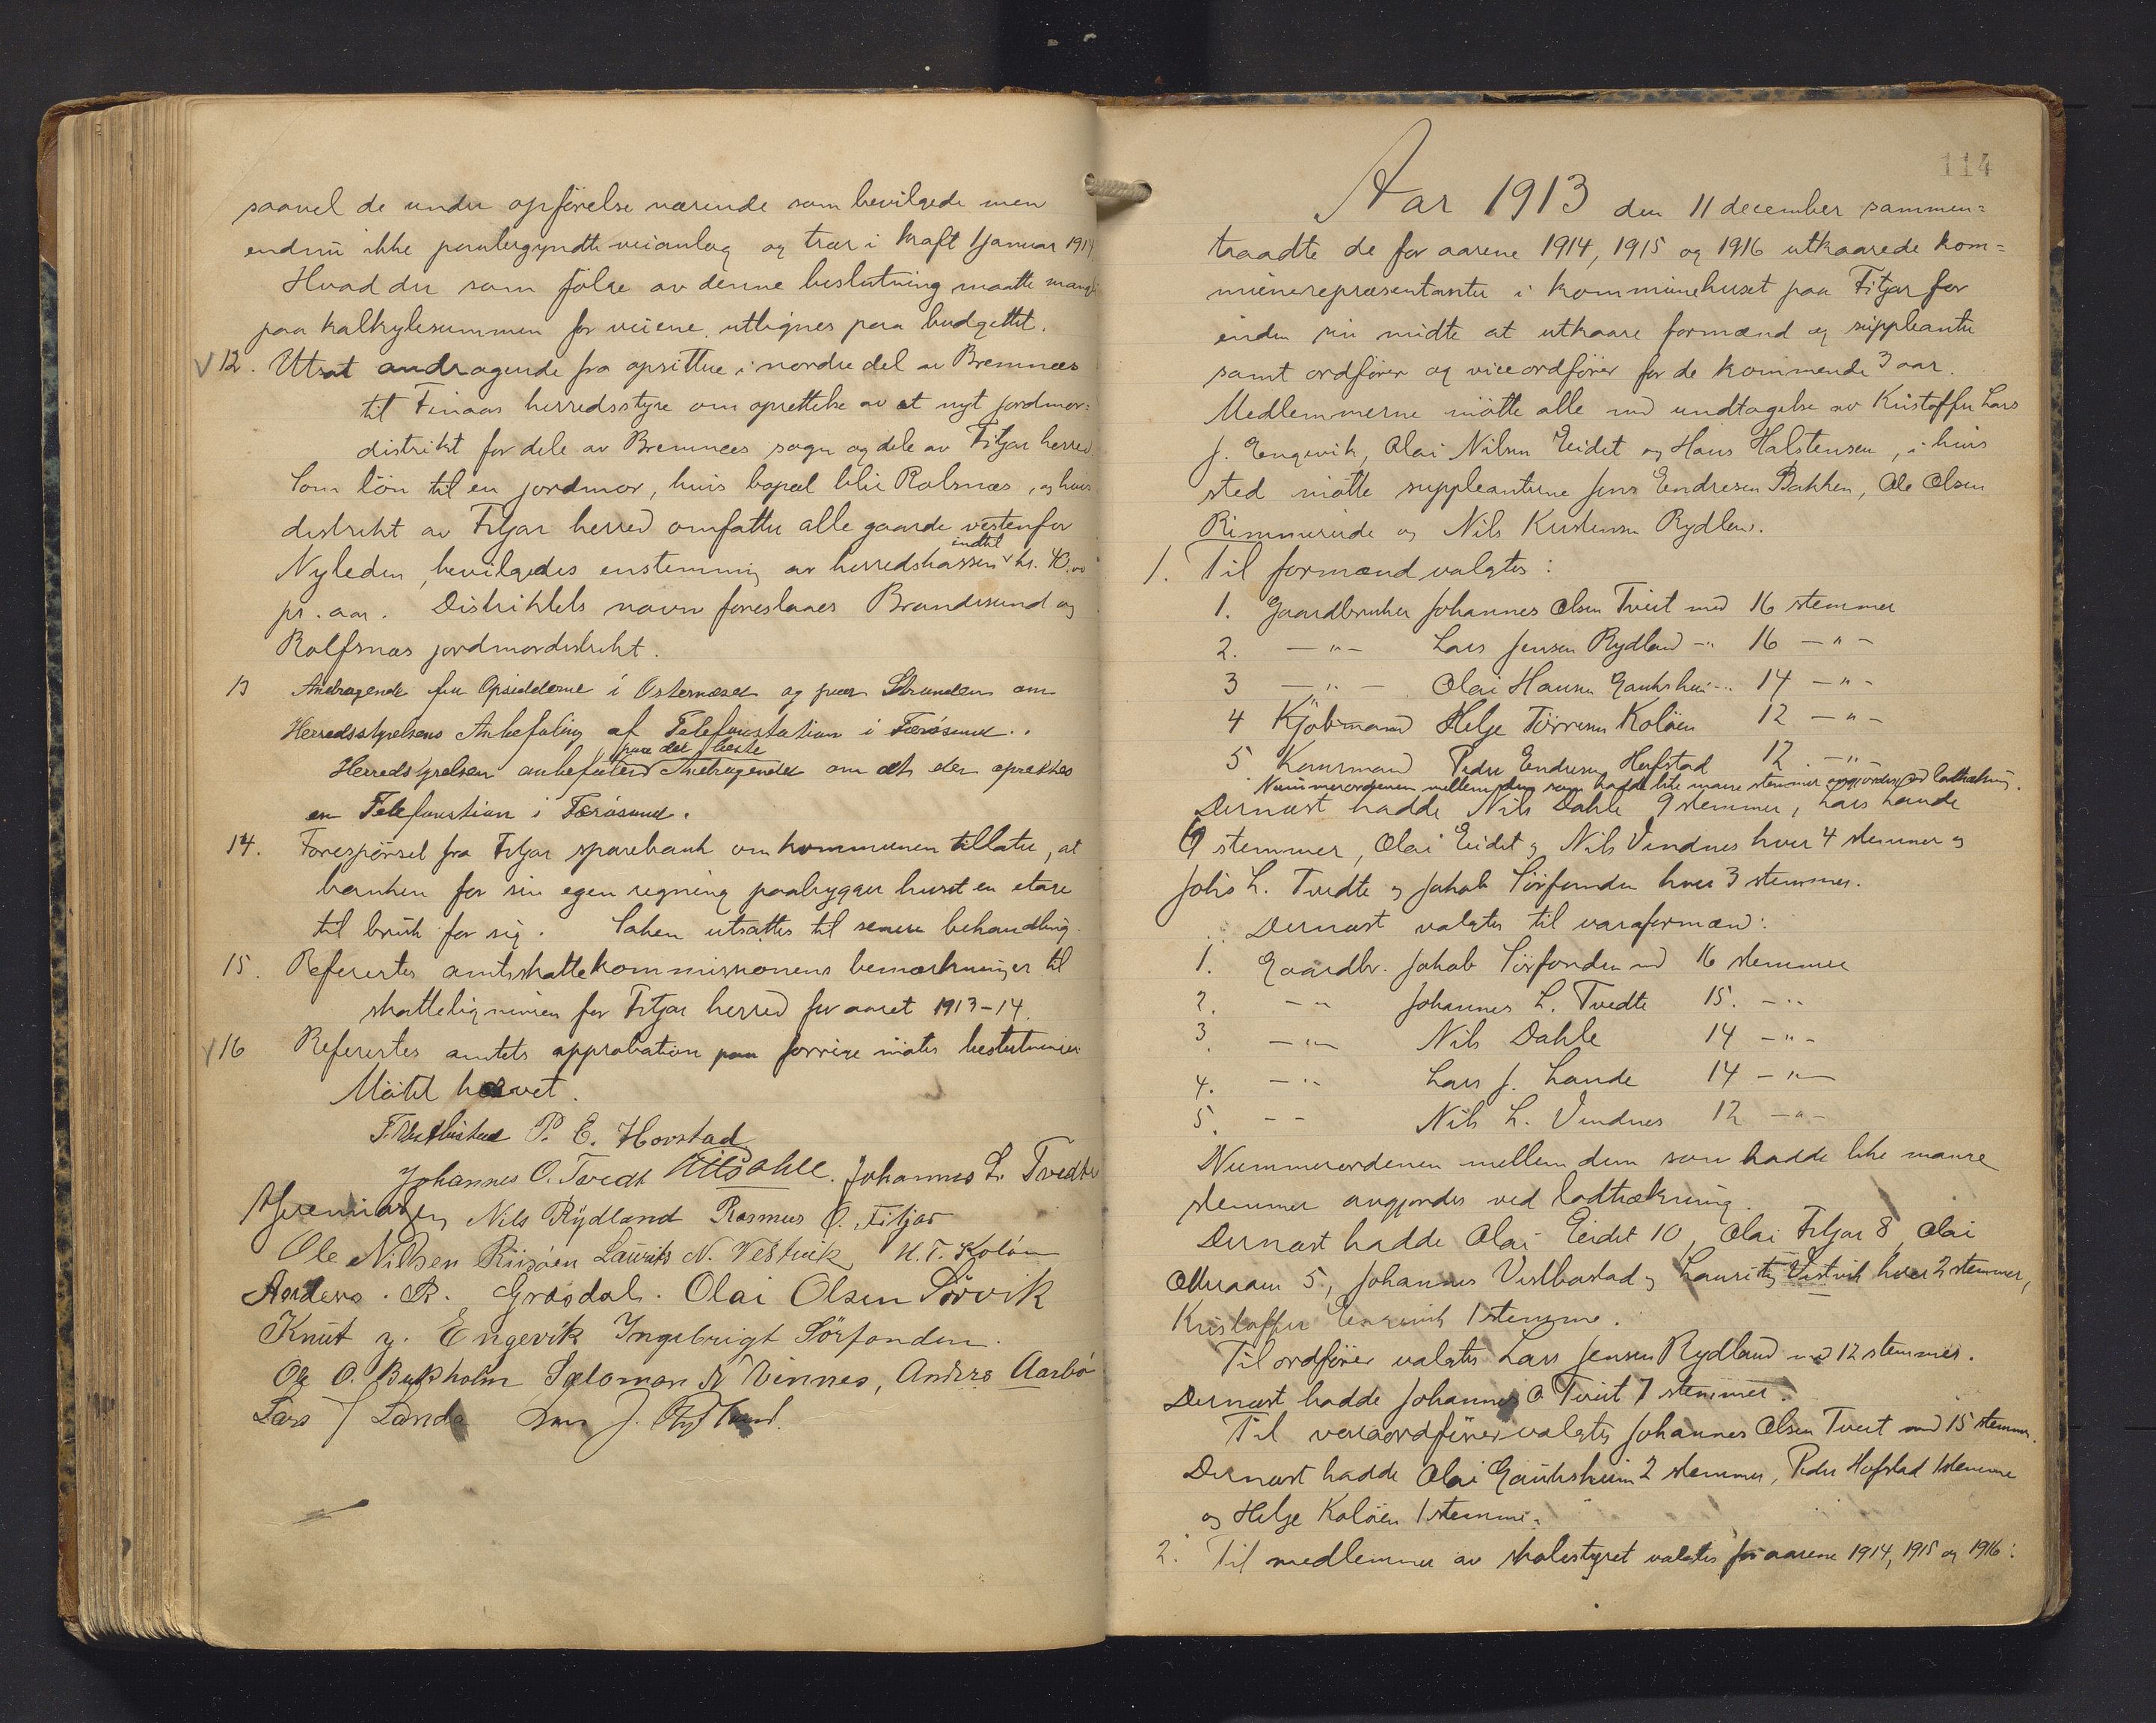 saavel de under opförelse værende som bevilgede men
endnu ikke paabegyndte veianlæg og træer i kraft 1 januar 1914.
Hvad der som følge av denne beslutning maatte mangle
paa kalkylesummen for veiene utlignes paa budgettet.
√ 12. Utsat andragende fra opsittere i nordre del av Bremnæs
til Finaas herredsstyre om oprettelse av et nyt jordmor-
distrikt for dele av Bremnæs sogn og dele av Fitjar herred.
Som lön til en jordmor, hvis bopæl blir Rolsnæs, og hvis
distrikt av Fitjar herred omfatter alle gaarde vestenfor
indtil
Nyleden, bevilgedes enstemmig av herredskassen kr. 40.00
pr. aar. Distriktets navn foreslaaes Brandesund og
Rolfsnæs jordmordistrikt.
13 Andragende fra Opsidderne i Osternæset og paa Stranden om
Herredsstyrelsens Anbefaling af Telefonstation i Færösund.
paa det beste
Herredstyrelsen anbefaler Andragendet om at der oprettes
en Telefonstion i Færösund.
14. Forespörsel fra Fitjar sparebank om kommunen tillater, at
banken for sin egen regning paabygger huset en etage
til bruk for sig. Saken utsattes til senere behandling.
15. Refertes amtsskattekommissionens bemærkninger til
skatteligningen for Fitjar herred for aaret 1913-14.
√ 16 Refertes amtets approbation paa forrige mötes beslutninger
Mötet hævet.
F. Vestbøstad P. E. Hovstad
Johannes O. Tvedt Nils Dahle. Johannes L. Tvedte
Nils Rydland Rasmus O. Fitjar
Ole Nilsen Riisöen Laurits N. Vestvik H. T. Kolöen
Anders. R. Græsdal. Olai Olsen Sörvik
Knut J. Engevik Ingebrigt Sörfonden.
Ole O. Bukholm Salomon N Vinnes, Anders Aarbö
Lars J Landa Lars J. Rydland.
114
Aar 1913 den 11 december sammen=
traadte de for aarene 1914, 1915 og 1916 utkaarede kom=
munerepræsentanter i kommunehuset paa Fitjar for
inden sin midte at utkaare formænd og suppleanter
samt ordfører og viceordfører for de kommende 3 aar.
Medlemmerne mötte alle med undtagelse av Kristoffer Lars
J. Engevik, Olai Nilsen Eidet og Hans Halstensen, i hvis
sted mötte suppleanterne Jens Endresen Bakken, Ole Olsen
Rimmereide og Nils Kristensen Rydland.
1. Til formænd valgtes:
1. Gaardbruker Johannes Olsen Tveit med 16 stemmer
2. — " — Lars Jensen Rydland — " 16 — " —
3 — " — Olai Hansen Gaukshei — " 14 — " —
4 Kjöbmand Helge Törresen Kolöen 12 — " —
5 Kornmand Peder Endresen Hofstad 12 — " —
Nummerordenen mellem dem som hadde like mange stemmer avgjordes ved lodtrækning.
Dernæst hadde Nils Dahle 9 stemmer, Lars Lande
9 stemmer, Olai Eidet og Nils Vindnes hver 4 stemmer og
Johs L. Tvedte og Jakob Sörfonden hver 3 stemmer.
Dernæst valgtes til varaformænd:
1. Gaardbr. Jakob Sörfonden med 16 stemmer
2. — " Johannes L. Tvedte 15. — "
3. — " — Nils Dahle 14 — " —
4. — " Lars J. Lande 14 — " —
5. — — Nils L. Vindnes 12 — " —
Nummerordenen mellem dem som hadde like mange
stemmer avgjordes ved lodtrækning.
Dernæst hadde Olai Eidet 10, Olai Fitjar 8, Olai
5, Johannes Vestbøstad og Laurits Vestvik hver 2 stemmer,
Kristoffer Engevik 1 stemme.
Til ordfører valgtes Lars Jensen Rydland med 12 stemmer.
Dernæst hadde Johannes O Tveit 7 stemmer.
Til varaordfører valgtes Johannes Olsen Tveit med 15 stemmer.
Dernæst hadde Olai Gauksheim 2 stemmer, Peder Hofstad 1 stemme
og Helge Kolöen 1 stemme.
2. Til medlemmer av skolestyret valgtes for aarene 1914, 1915 og 1916: